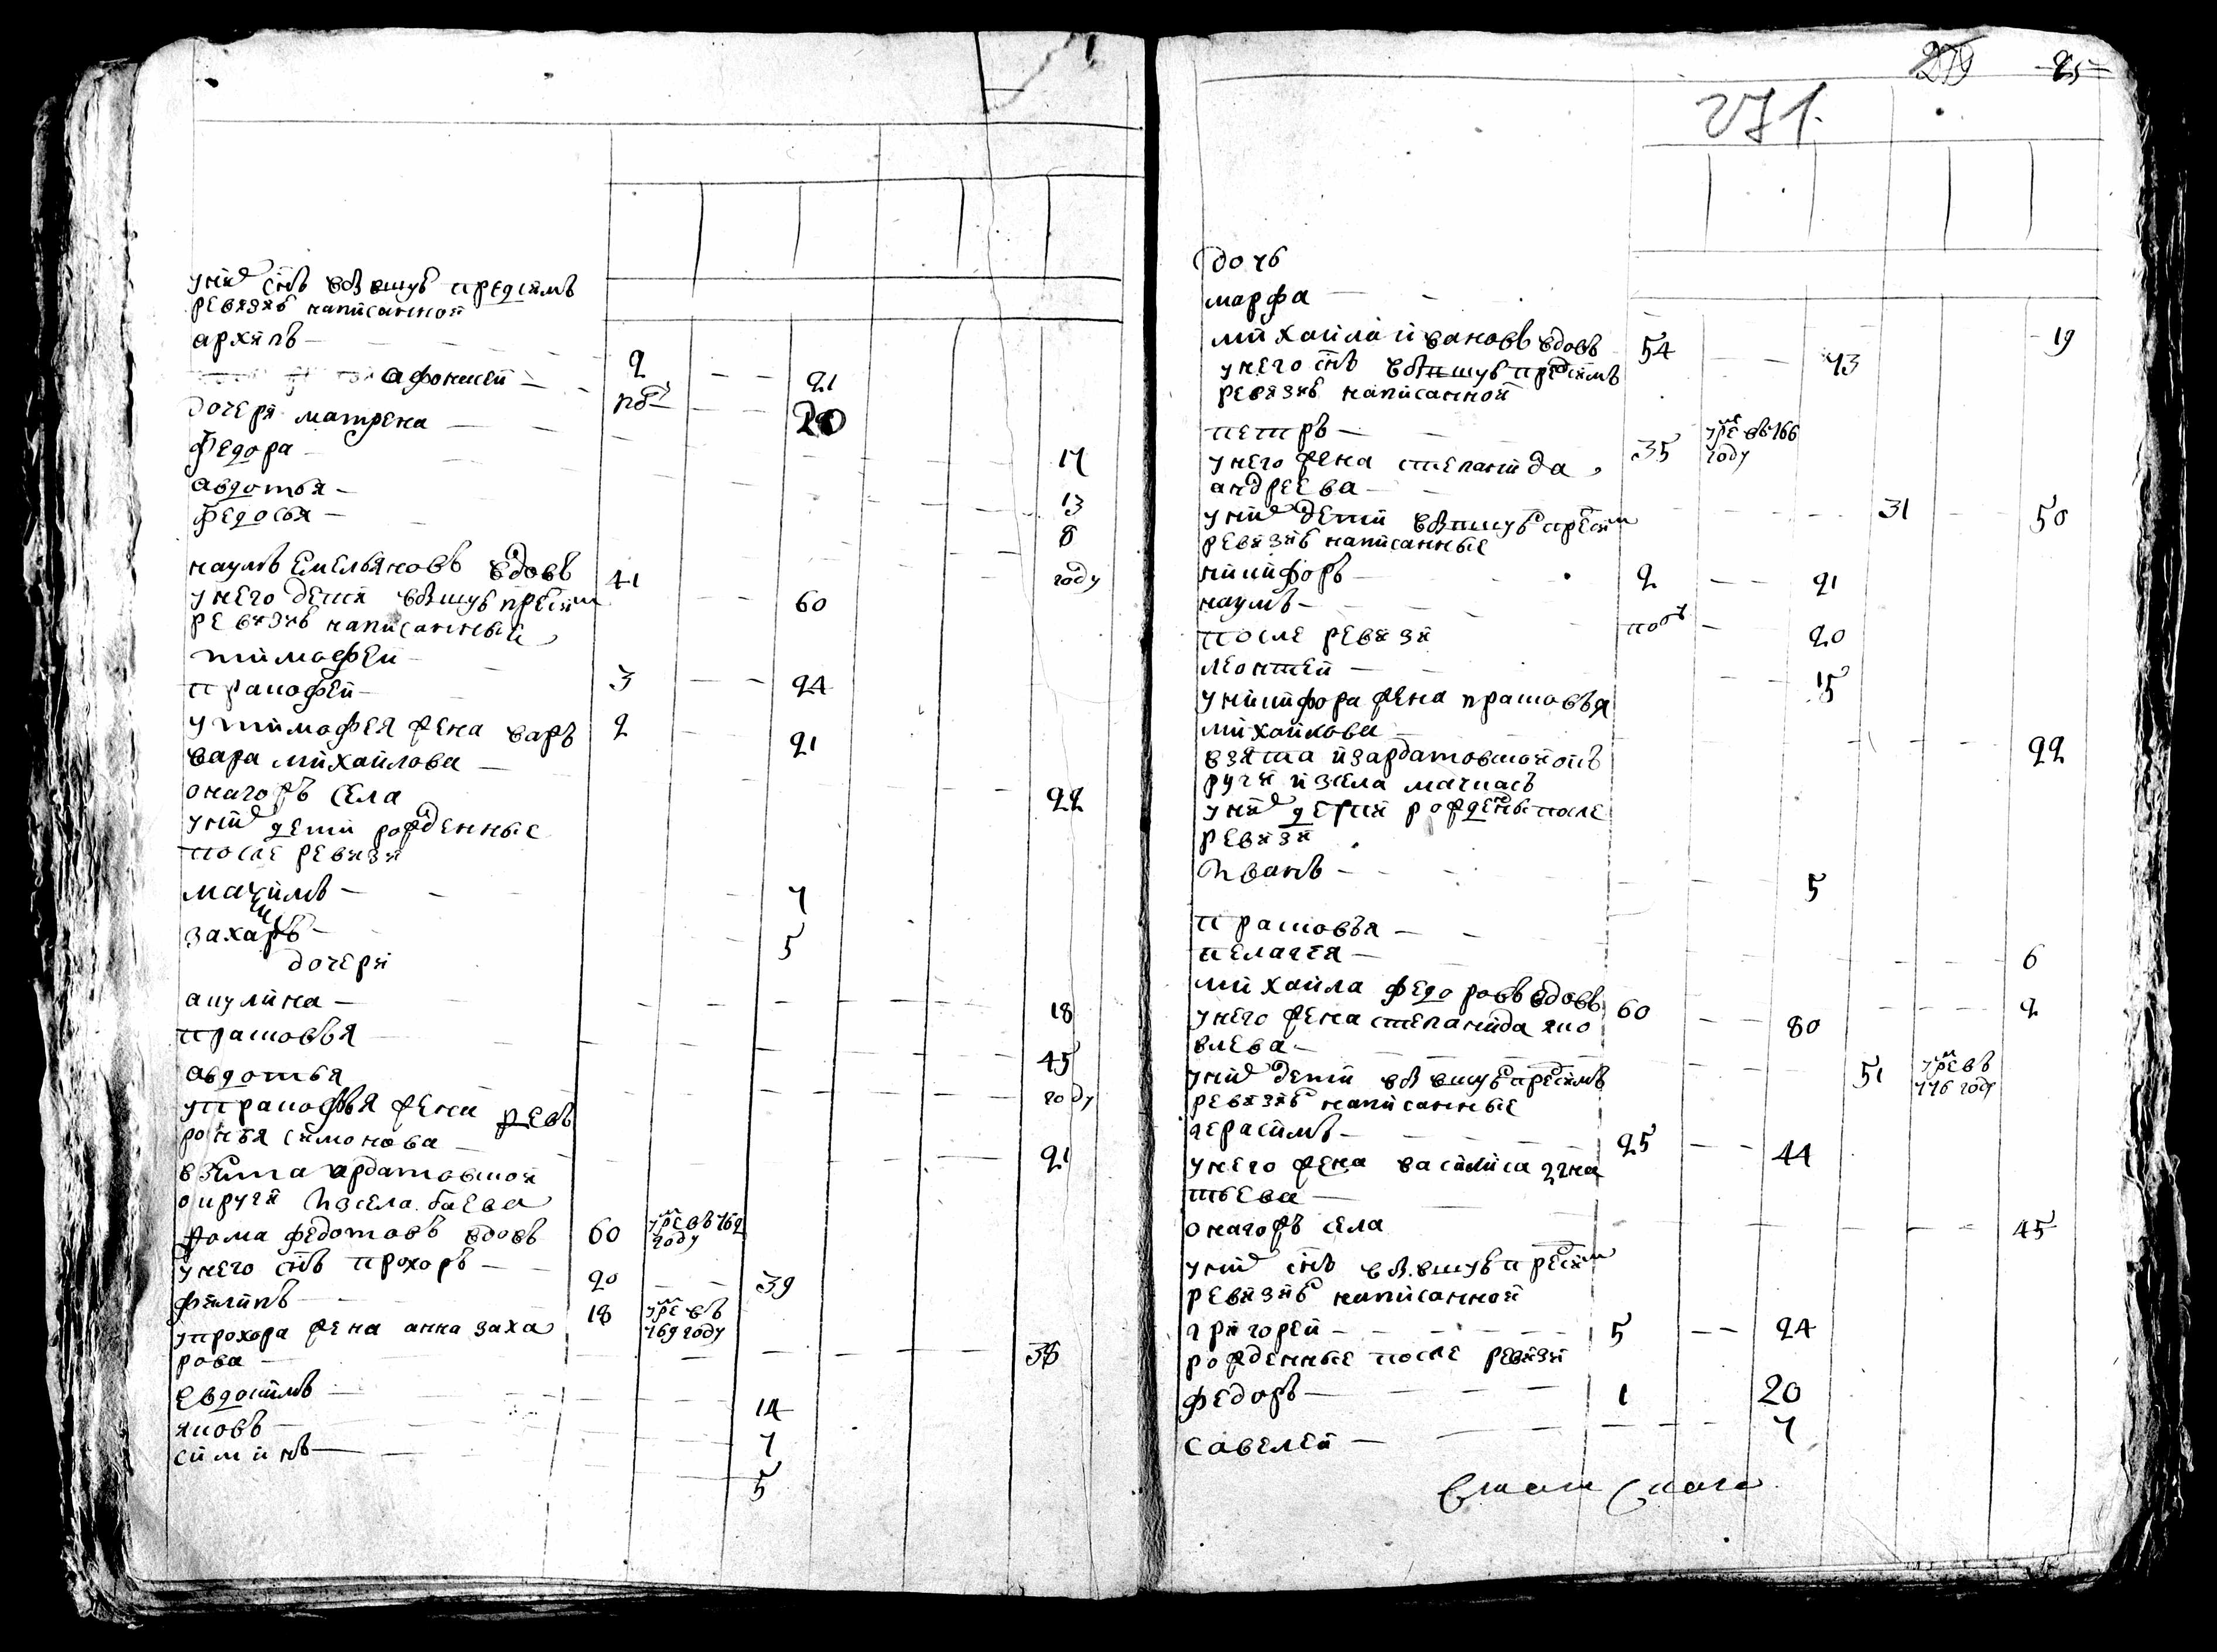 у ней снъ въ вышуъ предсимъ
ревизиъ написанной
архипъ 2 21
афонисей пбл 20
дочери матрена
федора 17
авдотья 13
федосья 8
наумъ емельяновъ вдовъ 41 60 году
у него дети въ вышуъ пресим
ревизиъ написанныѣ
тимофей 3 24
пракофей 2 21
у тимофея жена варъ
вара михайлова 22
она гожъ села
у ней дети рожденные
после ревизи
макъсимъ 7
захаръ 5
дочери
акулина 18
прасковья 45
авдотья году
у пракофья жена февъ
ронья симонова 21
взята ардатовской
округи изсела баева
фома федотовъ вдовъ 60 умре въ 769 году
у него снъ прохоръ 20 39
филипъ 18 умре въ 769 году
у прохора жена анна заха
рова 38
евдокимъ 14
яковъ 7
симинъ 5
270 25
271.
дочь
марфа 19
михайла ивановъ вдовъ 54 73
у него снъ въ вышуъ предсимъ
ревизиъ написанной
петръ 35 умре въ 766 году
у него жена степанида
андреева 31 50
у ней дети въ вышуъ пресим
ревизиъ написанные
никифоръ 2 21
наумъ пол 20
после ревизи
леонтей 15
у никифора жена прасковья
михайлова 22
взята из ардатовской окъ
руги из села мачкасъ
у ней дети рождены после
ревизи
иванъ 5
прасковья 6
пелагея 2
михайла федоровъ вдовъ 60 80
у него жена степанида яко
влева 51 умре въ 776 году
у ней дети въ вышуъ пресимъ
ревизиъ написанные
герасимъ 25 44
у него жена василиса игна
тьева 45
она гожъ села
у ней снъ въ вышуъ пресим
ревизиъ написанной
григорей 5 24
рожденные после ревизи
федоръ 1 20
савелей 7